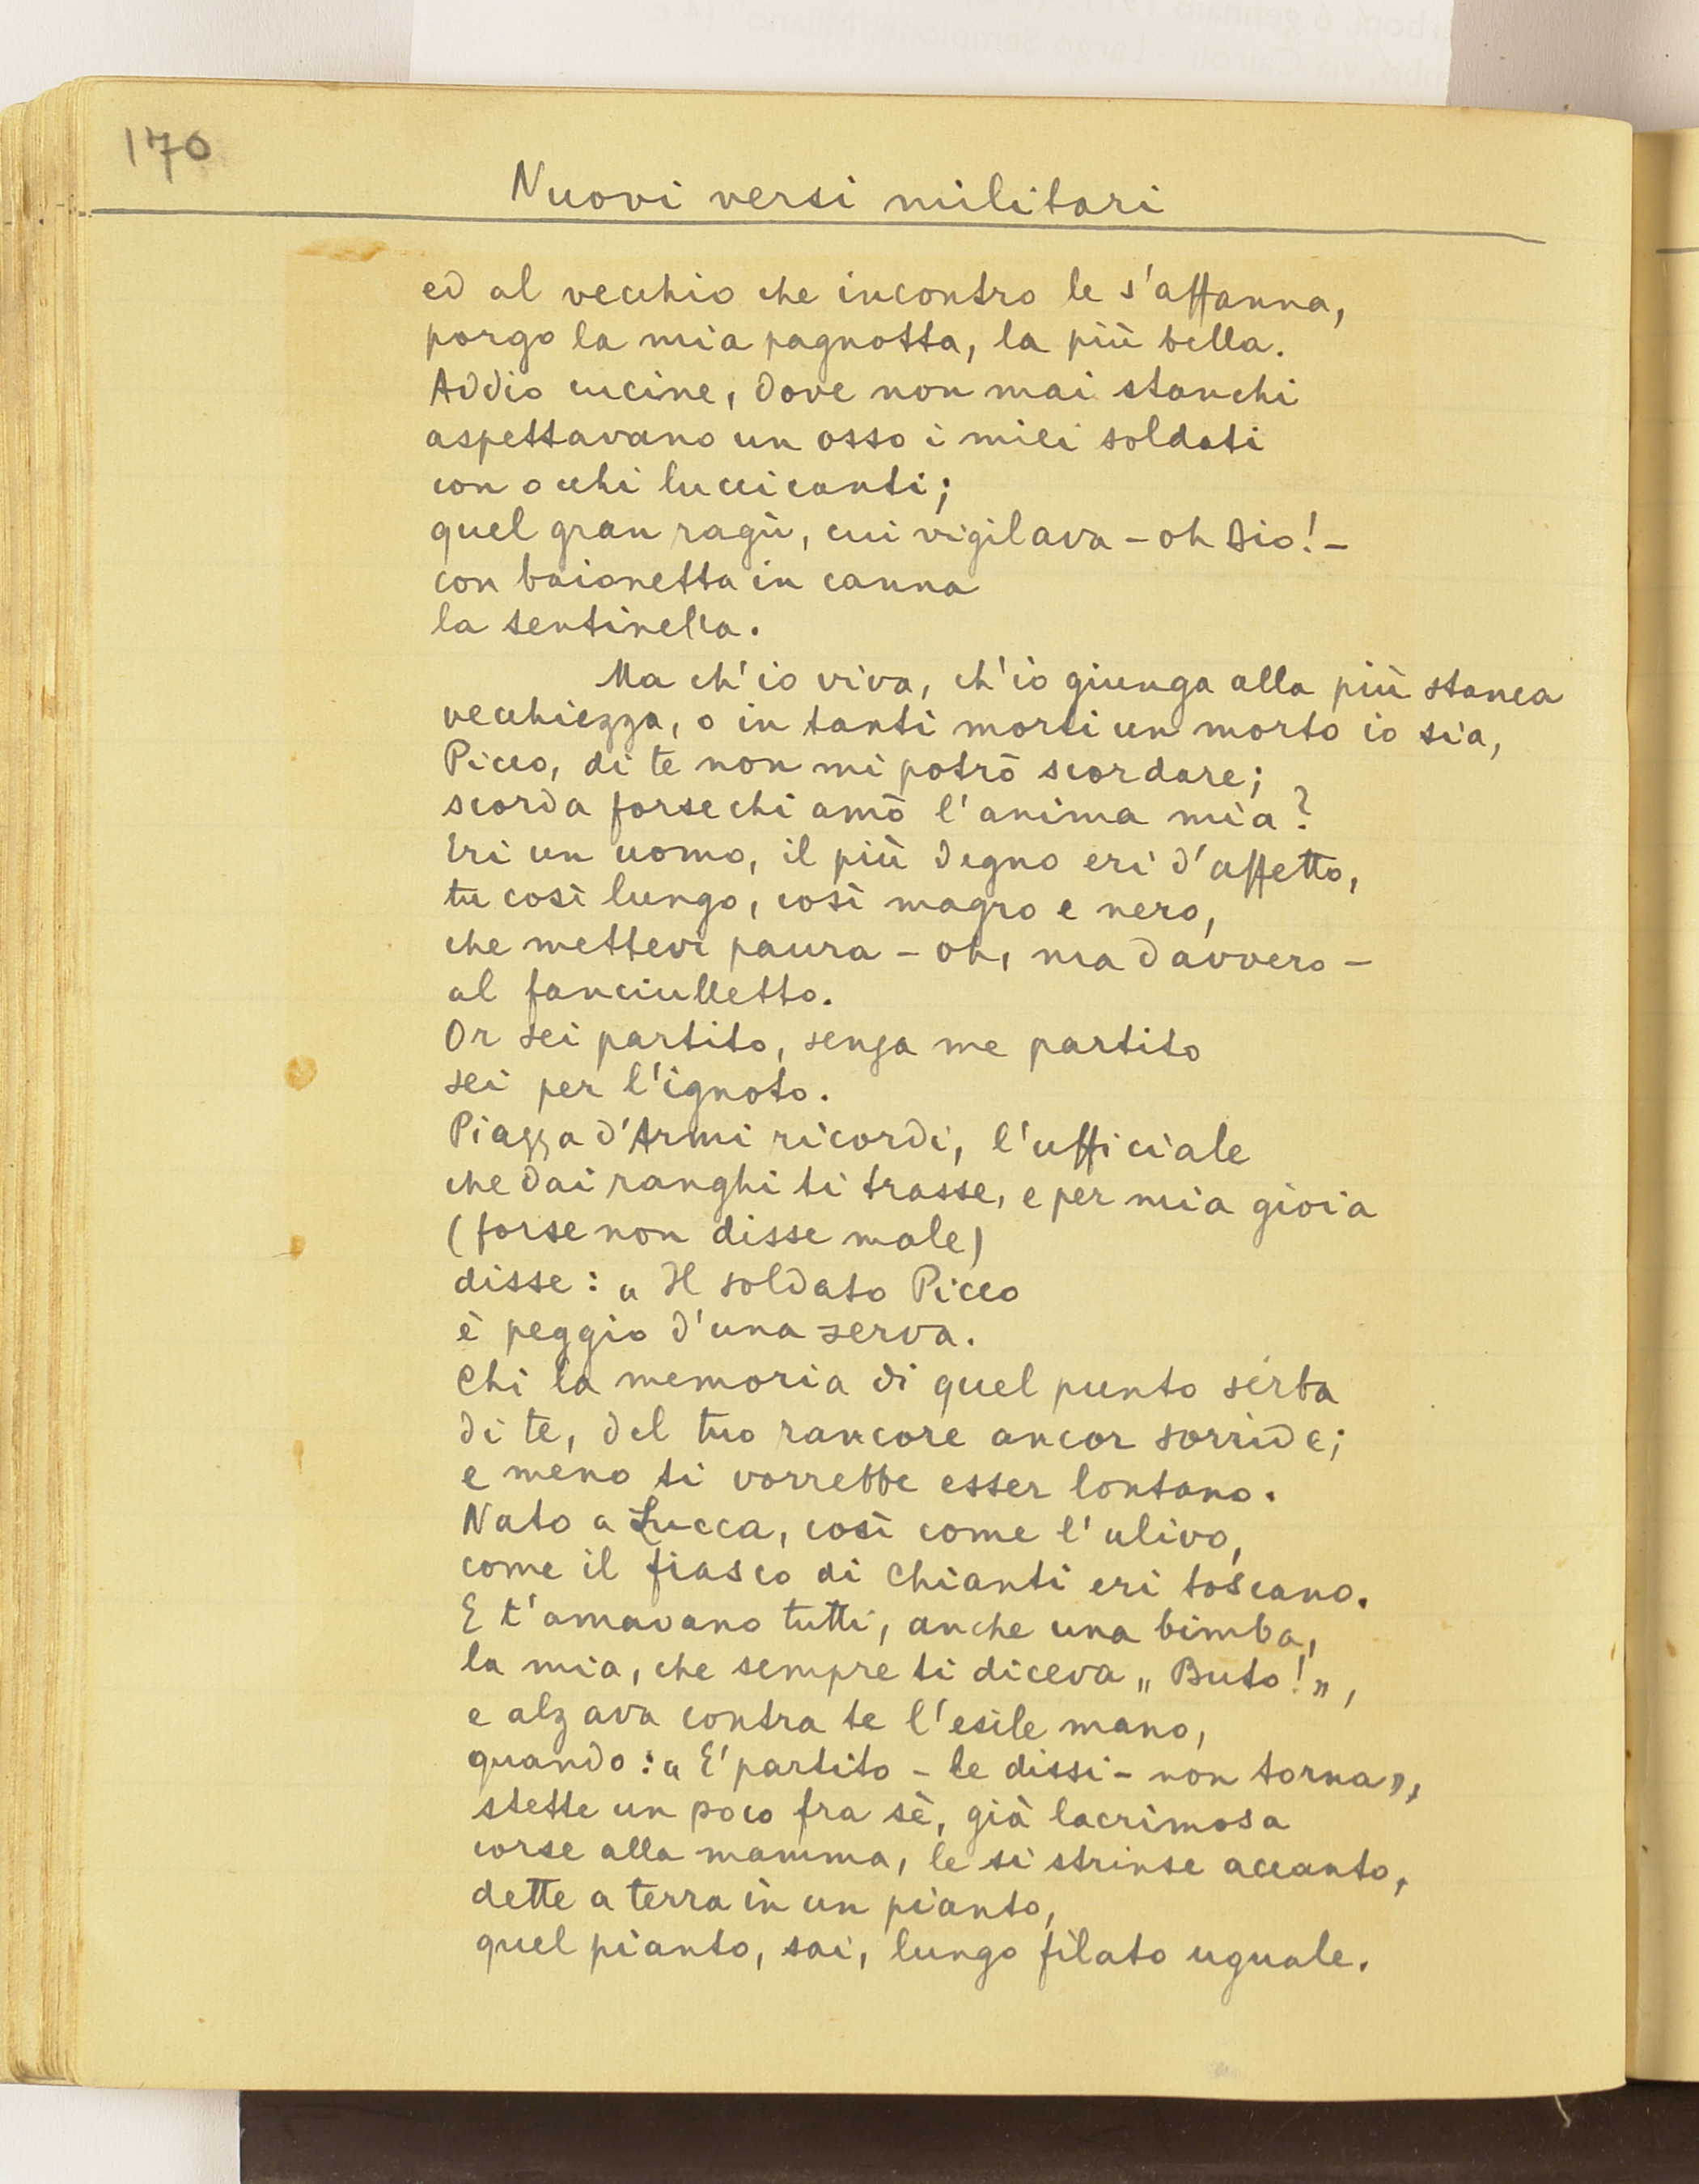 170
Nuovi versi militari
ed al vecchio che incontro le s'affanna,
porgo la mia pagnotta, la più bella.
Addio cucine, dove non mai stanchi
aspettavano un osso i miei soldati
con occhi luccicanti;
quel gran ragù, cui vigilava – oh Dio! –
con baionetta in canna
la sentinella.
Ma ch'io viva, ch'io giunga alla più stanca
vecchiezza, o in tanti morti un morto io sia,
Picco, di te non mi potrò scordare;
scorda forse chi amò l'anima mia?
Eri un uomo, il più degno eri d'affetto,
tu così lungo, così magro e nero,
che mettevi paura – oh, ma davvero –
al fanciulletto.
Or sei partito, senza me partito
sei per l'ignoto.
Piazza d'Armi ricordi, l'ufficiale
che dai ranghi ti trasse, e per mia gioia
(forse non disse male)
disse: „ Il soldato Picco
è peggio d'una serva.
Chi la memoria di quel punto serba
di te, del tuo rancore ancor sorride;
e meno ti vorrebbe esser lontano.
Nato a Lucca, così come l'ulivo,
come il fiasco di Chianti eri toscano.
E t'amavano tutti, anche una bimba,
la mia, che sempre ti diceva „ Buto! „,
e alzava contra te l'esile mano,
quando: „ E' partito – le dissi – non torna „,
stette un poco fra sè, già lacrimosa
corse alla mamma, le si strinse accanto,
dette a terra in un pianto,
quel pianto, sai, lungo filato uguale.